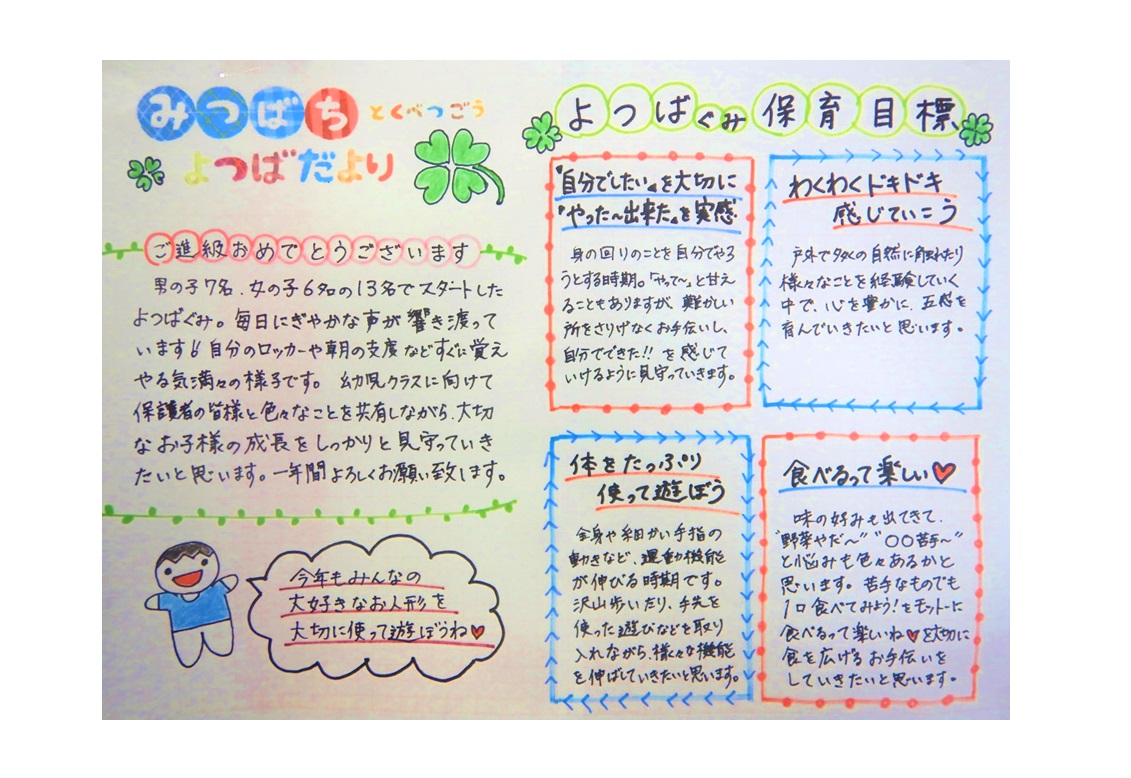 みつばち とくべつごう
よつばだより
ご進級おめでとうございます
男の子7名、女の子6名の13名でスタートした
よつばぐみ。毎日にぎやかな声が響き渡って
います!!自分のロッカーや朝の支度などすぐに覚え
やる気満々の様子です。幼児クラスに向けて
保護者の皆様と色々なことを共有しながら、大切
なお子様の成長をしっかりと見守っていき
たいと思います。一年間よろしくお願い致します。
今年もみんなの
大好きなお人形を
大切に使って遊ぼうね♥
よつばぐみ保育目標
『自分でしたい』を大切に
『やった〜出来た』を実感
身の回りのことを自分でやろ
うとする時期。「やって〜」と甘え
ることもありますが、難かしい
所をさりげなくお手伝いし、
自分でできた!! を感じて
いけるように見守っていきます。
わくわくドキドキ
感じていこう
戸外で多くの自然に触れたり
様々なことを経験していく
中で、心を豊かに、五感を
育んでいきたいと思います。
体をたっぷり
使って遊ぼう
全身や細かい手指の
動きなど、運動機能
が伸びる時期です。
沢山歩いたり、手先を
使った遊びなどを取り
入れながら、様々な機能
を伸ばしていきたいと思います。
食べるって楽しい♥
味の好みも出てきて、
"野菜やだ〜" "○○苦手〜"
と悩みも色々あるかと
思います。苦手なものでも
1口食べてみよう!をモットーに
食べるって楽しいね♥を大切に
食を広げるお手伝いを
していきたいと思います。